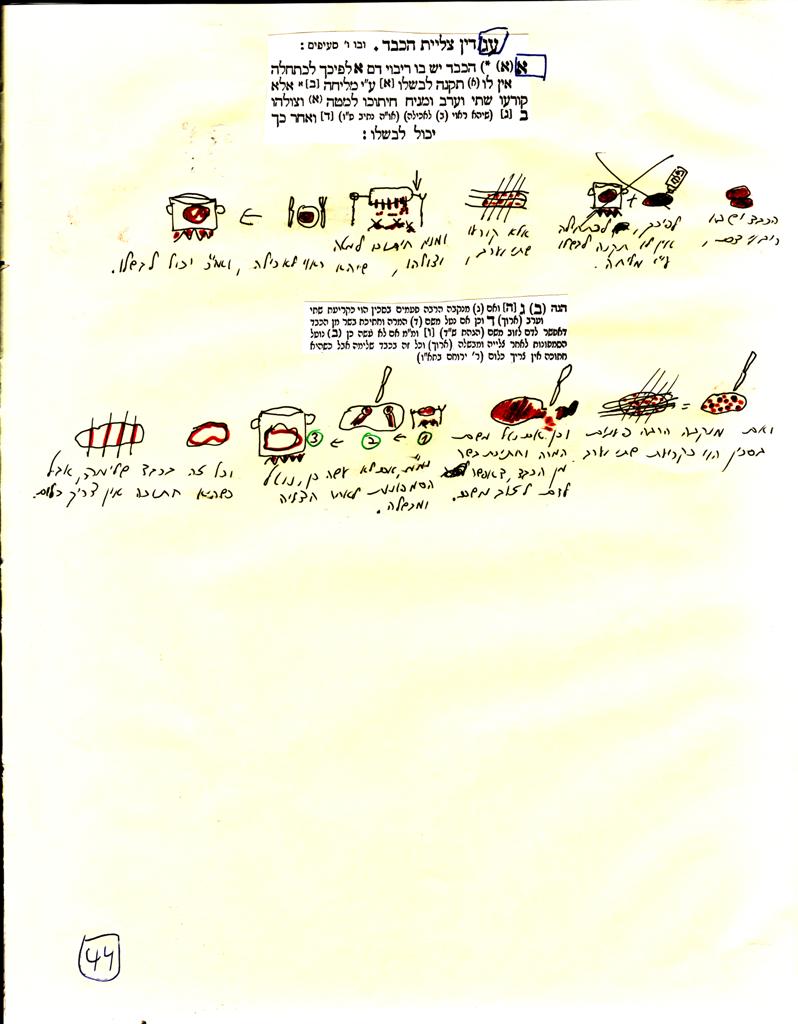 עג דין צליית הכבד. ובו ו' סעיפים:
א (א) *) הכבד יש בו ריבוי דם א לפיכך לכתחלה
אין לו (א) תקנה לבשלו [א] ע"י מליחה [ב] * אלא
קורעו שתי וערב ומניח חיתוכו למטה (א) וצולהו
ב [ג] (שיהא ראוי (ב) לאכילה) (או"ה נתיב ט"ו) [ד] ואחר כך
יכול לבשלו:
הכבד יש בו
ריבוי דם,
לפיכך, לכתחילה
אין לו תקנה לבשלו
ע"י מליחה.
אלא קורעו
שתי וערב,
ומניח חיתוכו למטה
וצולהו, שיהא ראוי לאכילה, ואח"כ יכול לבשלו.
הגה (ב) ג [ה] ואם (ג) מנקבה הרבה פעמים בסכין הוי כקריעת שתי
וערב (ארוך) ד וכן אם נטל משם (ד) המרה וחתיכת בשר מן הכבד
דאפשר לדם לזוב משם (הגהת ש"ד) [ו] ומ"מ אם לא עשה כן (ב) נוטל
הסמפונות לאחר צלייה ומבשלה (ארוך) וכל זה בכבד שלימה אבל כשהיא
חתוכה אין צריך כלום (ר' ירוחם בתא"ו)
ואם מנקבה הרבה פעמים
בסכין הוי כקריעת שתי וערב.
וכן אם נטל משם
המרה וחתיכת בשר
מן הכבד, דאפשר
לדם לזוב משם.
1
2
3
ומ"מ, אם לא עשה כן, נוטל
הסמפונות לאחר הצליה
ומבשלה.
וכל זה בכבד שלימה, אבל
כשהיא חתוכה אין צריך כלום.
44